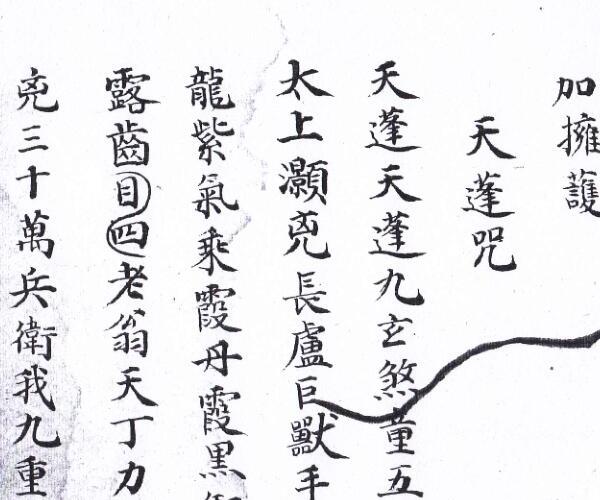 加擁護
天蓬咒
天蓬天蓬九玄煞童五
太上灝兇長盧巨獸手
龍紫氣乘霞丹霞黑
露齒目四老翁天丁力
兇三十萬兵衛我九重